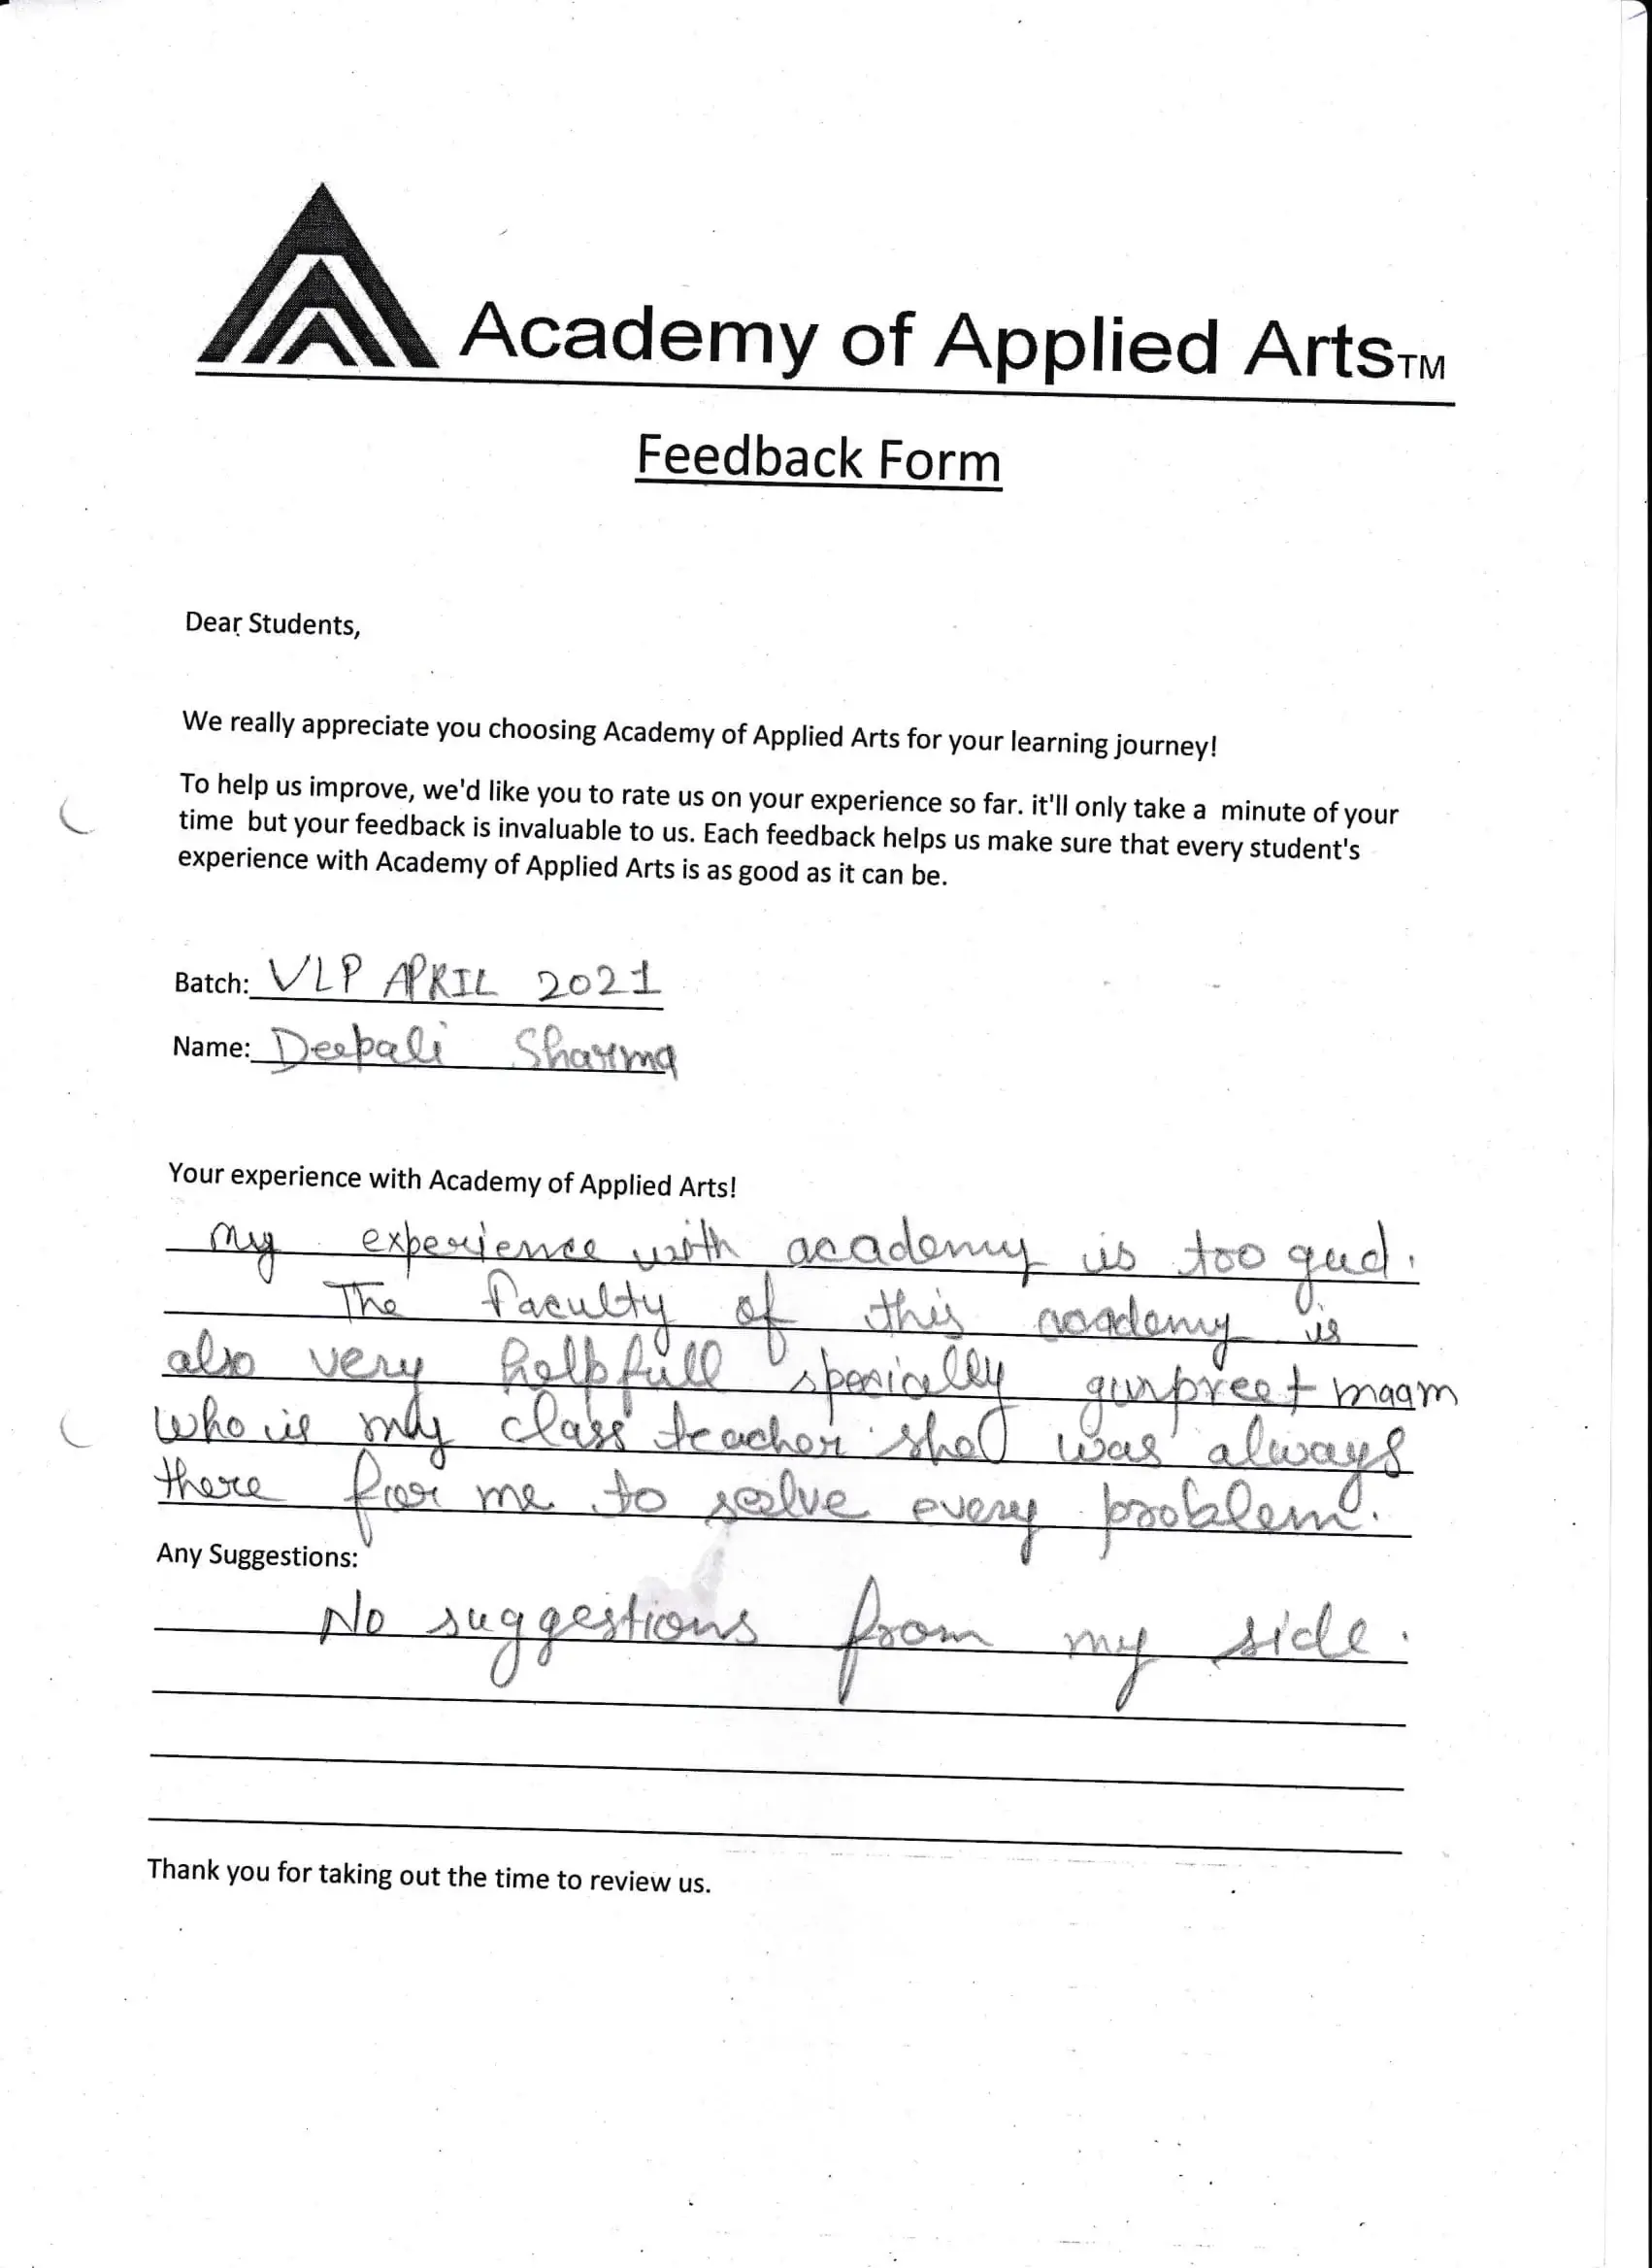 Academy of Applied Arts™
Feedback Form
Dear Students,
We really appreciate you choosing Academy of Applied Arts for your learning journey!
To help us improve, we'd like you to rate us on your experience so far. it'll only take a minute of your
time but your feedback is invaluable to us. Each feedback helps us make sure that every student's
experience with Academy of Applied Arts is as good as it can be.
Batch: VLP APRIL 2021
Name: Deepali Sharma
Your experience with Academy of Applied Arts!
My experience with academy is too gud.
The faculty of this academy is
also very helpfull specially gurpreet maam
who is my class teacher she was always
there for me to solve every problem.
Any Suggestions:
No suggestions from my side.
Thank you for taking out the time to review us.